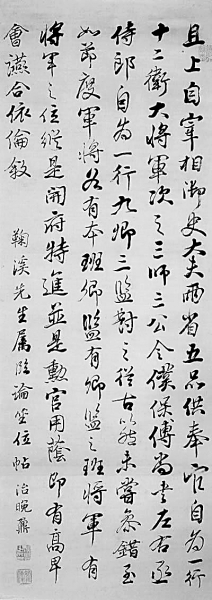 且上自宰相御史大夫兩省五品供奉官自為一行
十二衛大將軍次之三師三公令僕保傅尚書左右丞
侍郎自為一行九卿三監對之從古以然未嘗參錯至
如節度軍將各有本班卿監有卿監之班將軍有
將軍之位縱是開府特進並是勳官用蔭即有高卑
會讌合依倫敘
鞠溪先生属臨論坐位帖